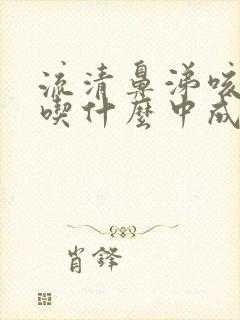 流清鼻涕咳
喫什麼中成
肖鋒